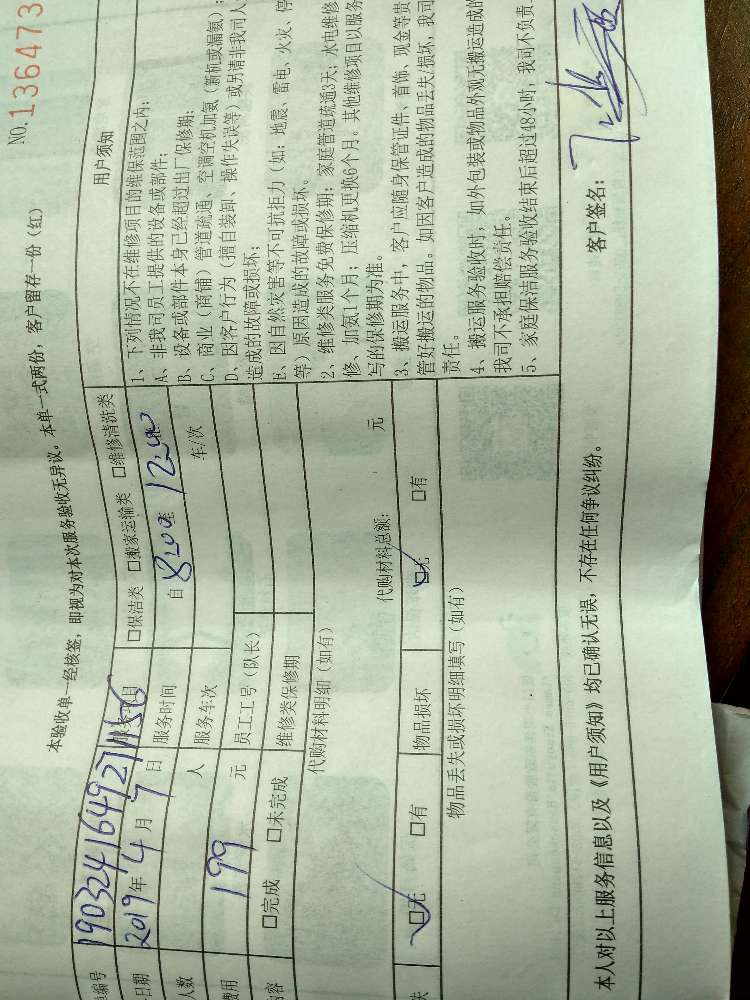 NO.136473
本验收单一经核签，即视为对本次服务验收无异议。本单一式两份，客户留存一份（红）
编号 190324164927 服务项目 □保洁类 □搬家运输类 □维修清洗类
日期 2019年4月7日 服务时间 自 8:00至 12:00
人数 人 服务车次 车/次
费用 199 元 员工工号（队长）
内容 □完成 □未完成 维修类保修期
代购材料明细（如有）
代购材料总额： 元
失 □无 □有 物品损坏 □无 □有
物品丢失或损坏明细填写（如有）
用户须知
1、下列情况不在维修项目的维保范围之内：
A、非我司员工提供的设备或部件；
B、设备或部件本身已经超过出厂保修期；
C、商业（商铺）管道疏通、空调空机加氨（新机或漏氨）；
D、因客户行为（擅自装卸、操作失误等）或另请非我司人
造成的故障或损坏；
E、因自然灾害等不可抗拒力（如：地震、雷电、火灾、停
等）原因造成的故障或损坏。
2、维修类服务免费保修期：家庭管道疏通3天；水电维修
修、加氨1个月；压缩机更换6个月。其他维修项目以服务
写的保修期为准。
3、搬运服务中，客户应随身保管证件、首饰、现金等贵
管好搬运的物品。如因客户造成的物品丢失/损坏，我司
责任。
4、搬运服务验收时，如外包装或物品外观无搬运造成的
我司不承担赔偿责任。
5、家庭保洁服务验收结束后超过48小时，我司不负责
本人对以上服务信息以及《用户须知》均已确认无误，不存在任何争议纠纷。
客户签名：